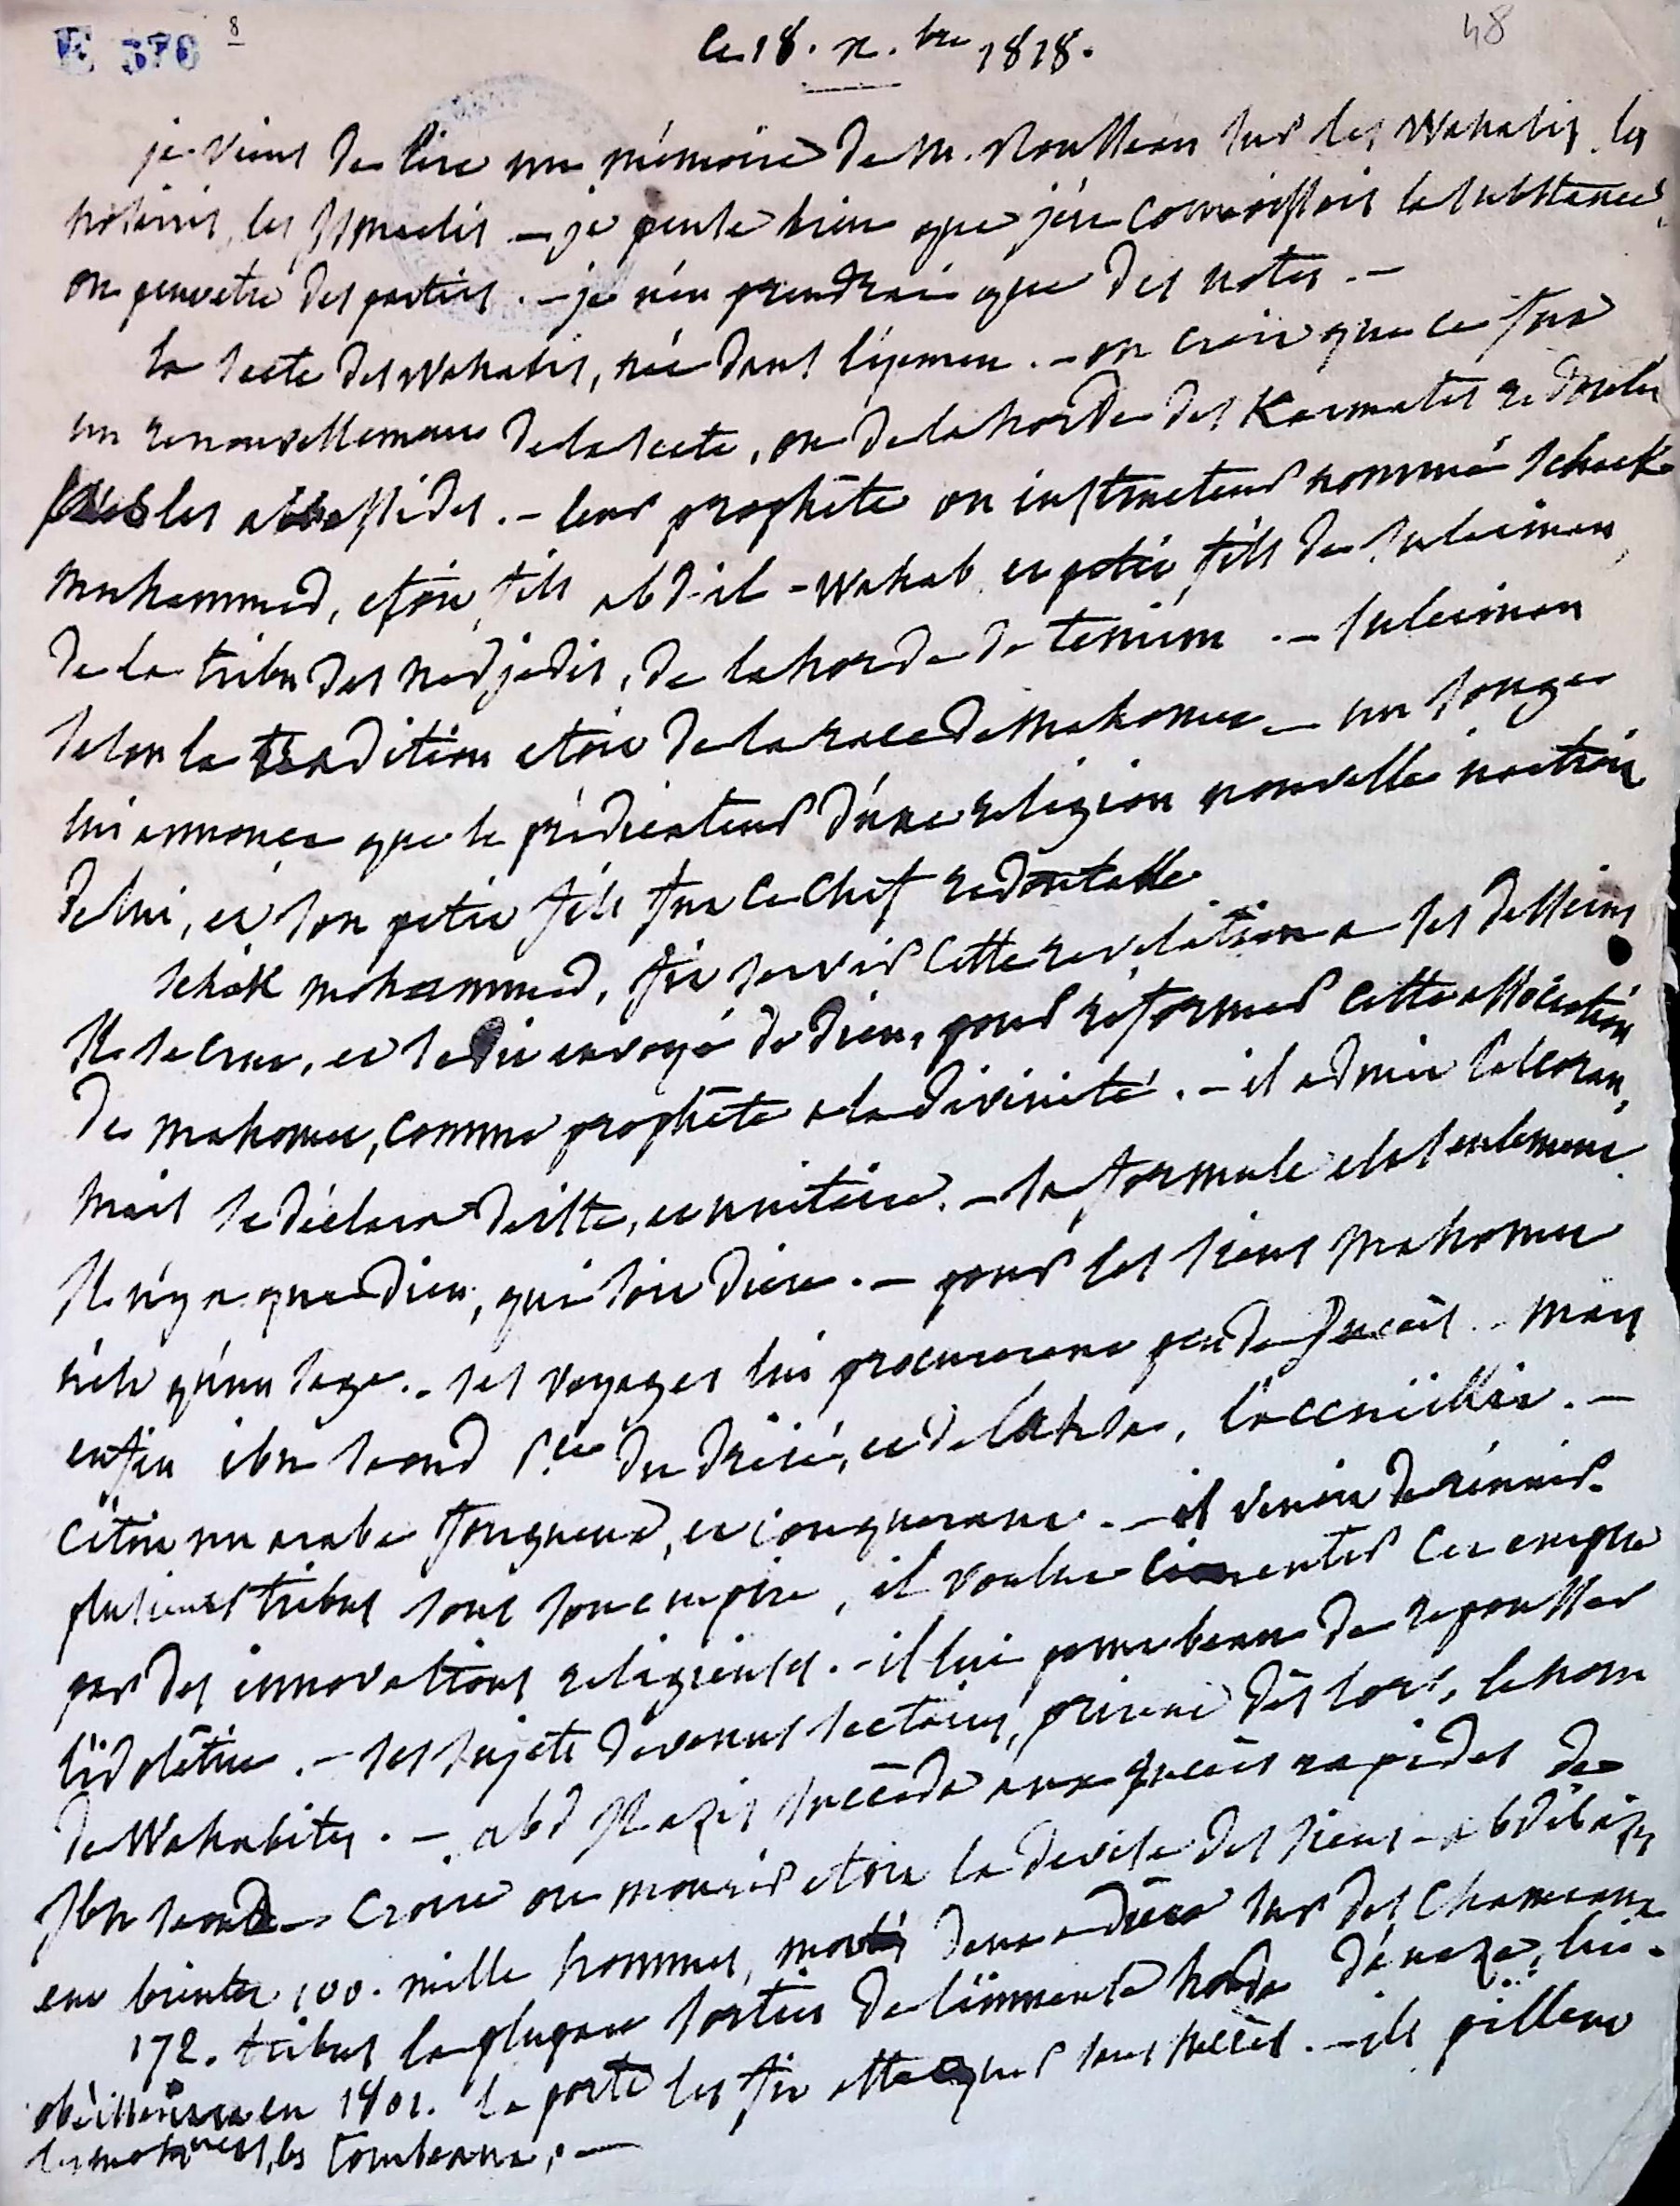 E 376 8
48
Ce 18. x.bre 1818.
je viens de lire un mémoire de M. Rousseau sur les Wahabis, les
nosairis, les Ismaelis — je pense bien que j'en connoissois la substance,
ou peutetre des parties. — je n'en prendrai que des notes. —
la secte des Wahabis, née dans l'yemen. — on croit que ce fut
un renouvellement de la secte, ou de la horde des Karmates redoutée
sous les abbassides. — leur prophète ou instructeur nommé scheik
Muhammed, etoit fils abd-il-Wahab et petit fils de suleiman,
de la tribu des nedjedis, de la horde de temim. — suleiman
selon la tradition etoit de la race de Mahomet — un songe
lui annonça que le prédicateur d'une religion nouvelle naitroit
de lui, et son petit fils fut ce chef redoutable
scheik mohammed, fit servir cette revelation a ses desseins
Il se crut, et se dit envoyé de dieu, pour reformer cette association
de mahomet, comme prophète a la divinité. — il admit l'alcoran,
mais se déclara deiste, et unitaire. — sa formule est seulement
Il n'y a que dieu, qui soit dieu. — pour les siens Mahomet
n'est qu'un sage. — ses voyages lui procurerent peu de succès. — mais
enfin ibn saoud du drisié, et de lahsa, l'accueillit. —
C'étoit un arabe fougueux, et conquerant. — il venoit de réunir
plusieurs tribus sous son empire, il voulut cimenter cet empire
par des innovations religieuses. — il lui parut beau de repousser
l'idolâtrie. — ses sujets devenus sectaires, prirent dès lors, le nom
de Wahabites. — abd Il azis succéda aux succès rapides de
Ibn saoud — croire ou mourir etoit la devise des siens — abdelazis
eut bientôt 100. mille hommes, montés deux a deux sur des chameaux
172. tribus la plupart sorties de l'immense horde d'anazé, lui
obéissoient en 1801. la porte les fit attaquer sans succès. — ils pillent
les mosquées, les tombeaux, —